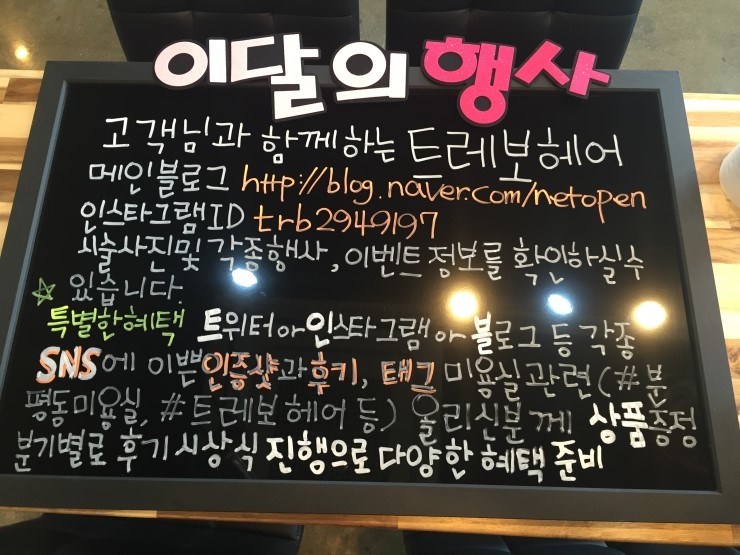 이달의 행사
고객님과 함께하는 트레보헤어
메인블로그 http://blog.naver.com/netopen
인스타그램ID trb2949197
시술사진및 각종행사, 이벤트 정보를 확인하실수
있습니다.
☆특별한혜택 트위터아인스타그램아블로그 등 각종
SNS에 이쁜인증샷과후기, 태그 미용실관련(#분
평동미용실, #트레보헤어 등) 올리신분께 상품증정
분기별로 후기시상식 진행으로 다양한 혜택 준비